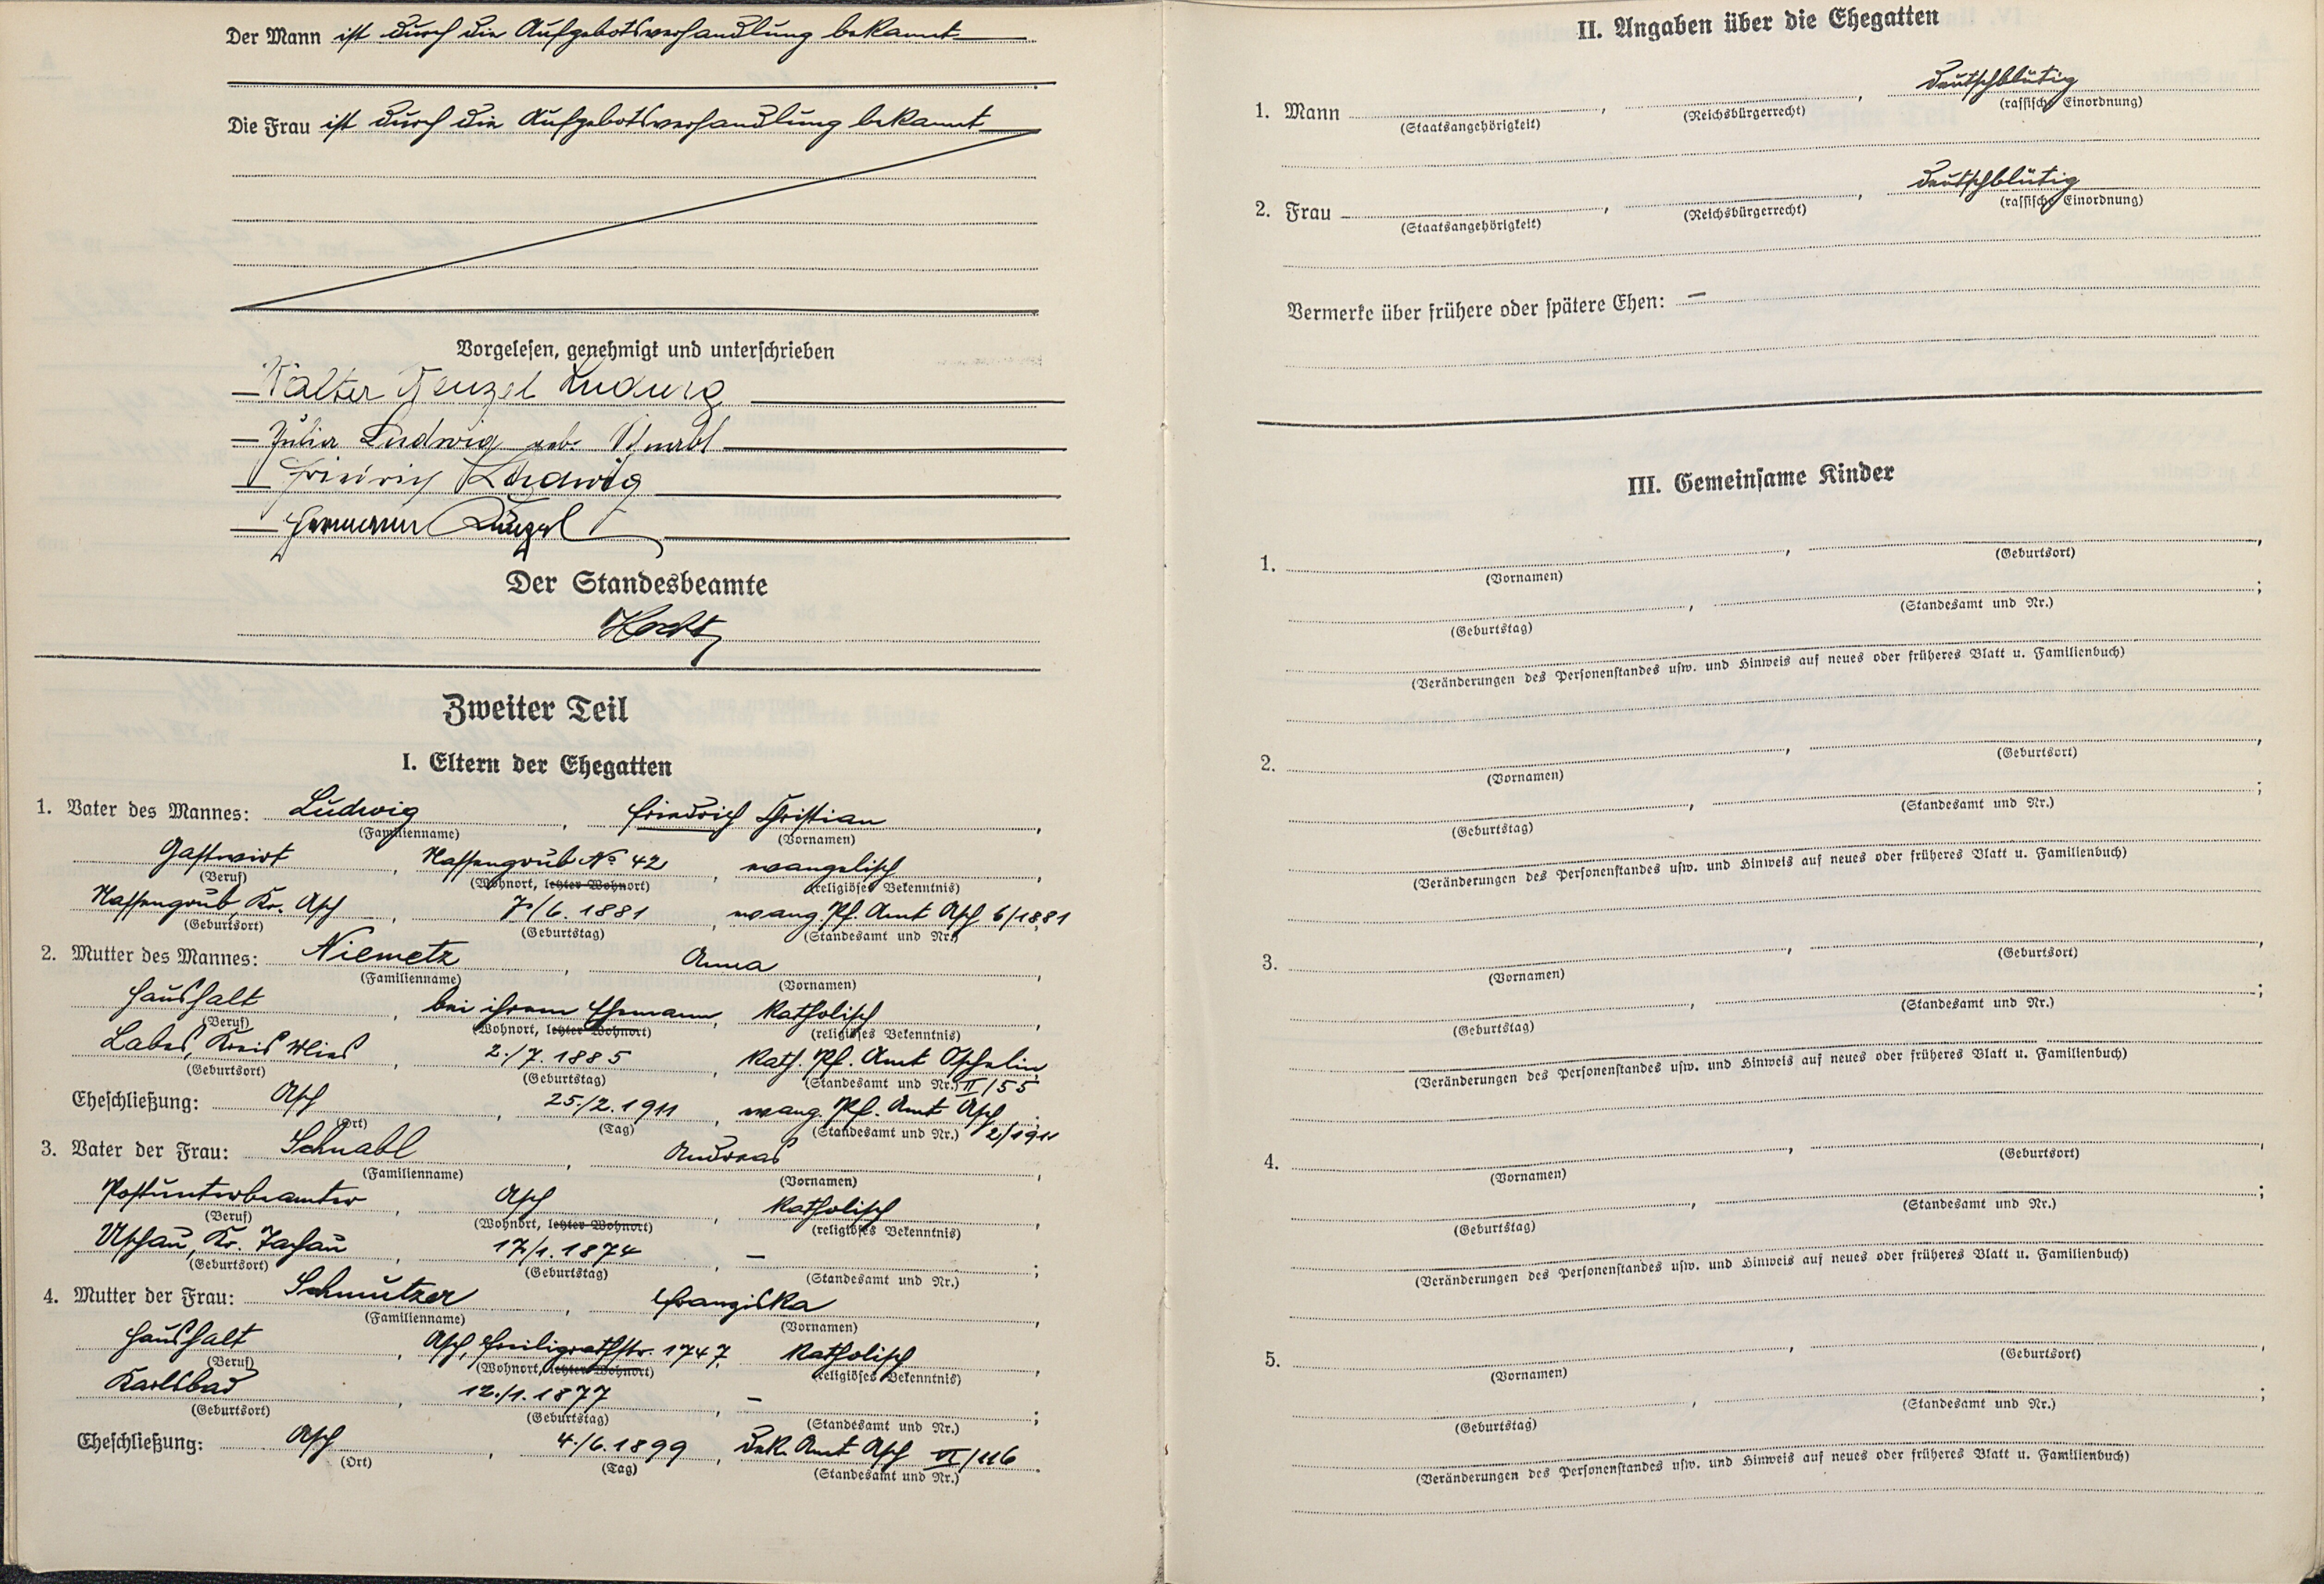 Der Mann ist durch die Aufgebotsverhandlung bekannt
Die Frau ist durch die Aufgebotsverhandlung bekannt
Vorgelesen, genehmigt und unterschrieben
Walter Wenzel Ludwig
Julia Ludwig geb. Schnabl
Friedrich Ludwig
Hermann Künzel
Der Standesbeamte
Zweiter Teil
I. Eltern der Ehegatten
1. Vater des Mannes: Ludwig, Friedrich Christian,
(Familienname) (Vornamen)
Gastwirt, Nassengrub No 42, evangelisch,
(Beruf) (Wohnort, letzter Wohnort) (religiöses Bekenntnis)
Nassengrub, Kr. Asch, 7./6. 1881, evang. Pf. Amt Asch 6/1881
(Geburtsort) (Geburtstag) (Standesamt und Nr.)
2. Mutter des Mannes: Niemetz, Anna,
(Familienname) (Vornamen)
Haushalt, bei ihrem Ehemann, katholisch,
(Beruf) (Wohnort, letzter Wohnort) (religiöses Bekenntnis)
Labes, Kreis Mies, 2./7. 1885, kath. Pf. Amt Oschelin
(Geburtsort) (Geburtstag) (Standesamt und Nr.) II/55
Eheschließung: Asch, 25./2. 1911, evang. Pf. Amt Asch
(Ort) (Tag) (Standesamt und Nr.) 2/1911
3. Vater der Frau: Schnabl, Andreas,
(Familienname) (Vornamen)
Postunterbeamter, Asch, katholisch,
(Beruf) (Wohnort, letzter Wohnort) (religiöses Bekenntnis)
Uschau, Kr. Tachau, 17./1. 1874, –;
(Geburtsort) (Geburtstag) (Standesamt und Nr.)
4. Mutter der Frau: Schmutzer, Franziska,
(Familienname) (Vornamen)
Haushalt, Asch, Freiligrathstr. 1747, katholisch,
(Beruf) (Wohnort, letzter Wohnort) (religiöses Bekenntnis)
Karlsbad, 12./1. 1877, –;
(Geburtsort) (Geburtstag) (Standesamt und Nr.)
Eheschließung: Asch, 4./6. 1899, Dek. Amt Asch VI/116.
(Ort) (Tag) (Standesamt und Nr.)
II. Angaben über die Ehegatten
1. Mann , , deutschblütig
(Staatsangehörigkeit) (Reichsbürgerrecht) (rassische Einordnung)
2. Frau , , deutschblütig
(Staatsangehörigkeit) (Reichsbürgerrecht) (rassische Einordnung)
Vermerke über frühere oder spätere Ehen: –
III. Gemeinsame Kinder
1. , ,
(Vornamen) (Geburtsort)
, ;
(Geburtstag) (Standesamt und Nr.)
(Veränderungen des Personenstandes usw. und Hinweis auf neues oder früheres Blatt u. Familienbuch)
2. , ,
(Vornamen) (Geburtsort)
, ;
(Geburtstag) (Standesamt und Nr.)
(Veränderungen des Personenstandes usw. und Hinweis auf neues oder früheres Blatt u. Familienbuch)
3. , ,
(Vornamen) (Geburtsort)
, ;
(Geburtstag) (Standesamt und Nr.)
(Veränderungen des Personenstandes usw. und Hinweis auf neues oder früheres Blatt u. Familienbuch)
4. , ,
(Vornamen) (Geburtsort)
, ;
(Geburtstag) (Standesamt und Nr.)
(Veränderungen des Personenstandes usw. und Hinweis auf neues oder früheres Blatt u. Familienbuch)
5. , ,
(Vornamen) (Geburtsort)
, ;
(Geburtstag) (Standesamt und Nr.)
(Veränderungen des Personenstandes usw. und Hinweis auf neues oder früheres Blatt u. Familienbuch)